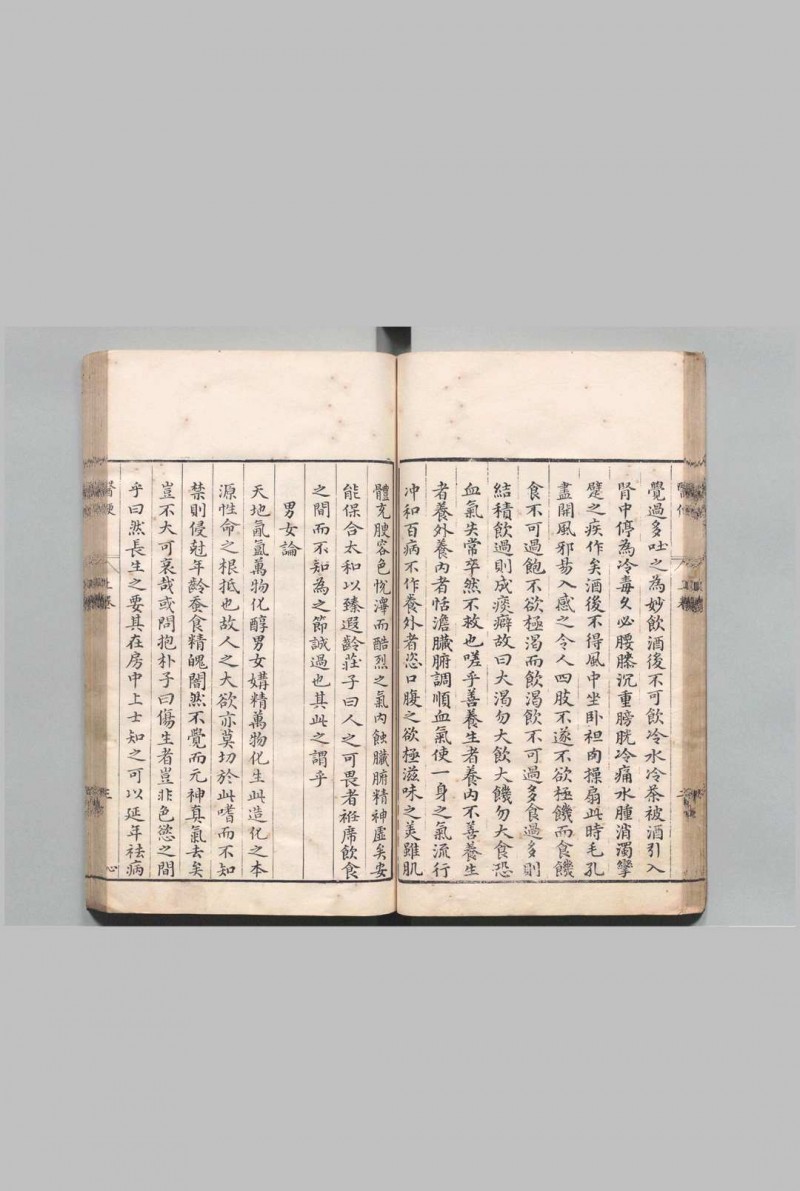 覺過多吐之為妙飲酒後不可飲冷水冷茶被酒引入
腎中停為冷毒久必腰膝沉重膀胱冷痛水腫消濁攣
躄之疾作矣酒後不得風中坐卧袒肉操扇此時毛孔
盡開風邪昜入感之令人四肢不遂不欲極饑而食饑
食不可過飽不欲極渴而飲渴飲不可過多食過多則
結積飲過則成痰癖故曰大渴勿大飲大饑勿大食恐
血氣失常卒然不救也嗟乎善養生者養内不善養生
者養外養内者恬澹臟腑調順血氣使一身之氣流行
冲和百病不作養外者恣口腹之欲極滋味之美雖肌
體充腴容色悅澤而酷烈之氣内蝕臟腑精神虛矣安
能保合太和以臻遐齡莊子曰人之可畏者袵席飲食
之間而不知為之節誠過也其此之謂乎
男女論
天地氤氳萬物化醇男女媾精萬物化生此造化之本
源性命之根抵也故人之大欲亦莫切於此嗜而不知
禁則侵尅年齡蚕食精魄闇然不覺而元神真氣去矣
豈不大可哀哉或問抱朴子曰傷生者豈非色慾之間
乎曰然長生之要其在房中上士知之可以延年祛病
醫便
上卷
三